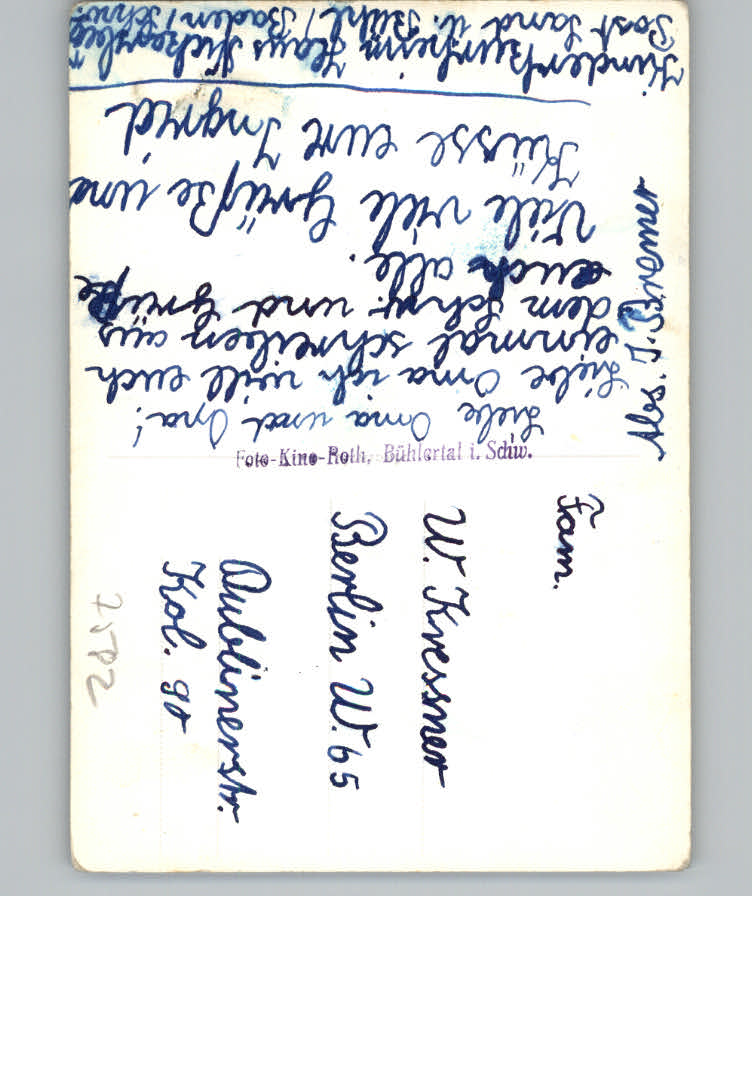 Liebe Oma und Opa!
Liebe Oma ich will euch
einmal schreiben aus
dem Schw. und Grüße
euch alle.
Viele viele Grüße und
Küsse eure Ingrid
Kinderkurheim Haus
Post Sand ü. Bühl / Baden / Schw.
Abs. I.
Foto-Kino-Roth, Bühlertal i. Schw.
Fam.
W. Kressner
Berlin W. 65
Dublinerstr.
Kol. 90